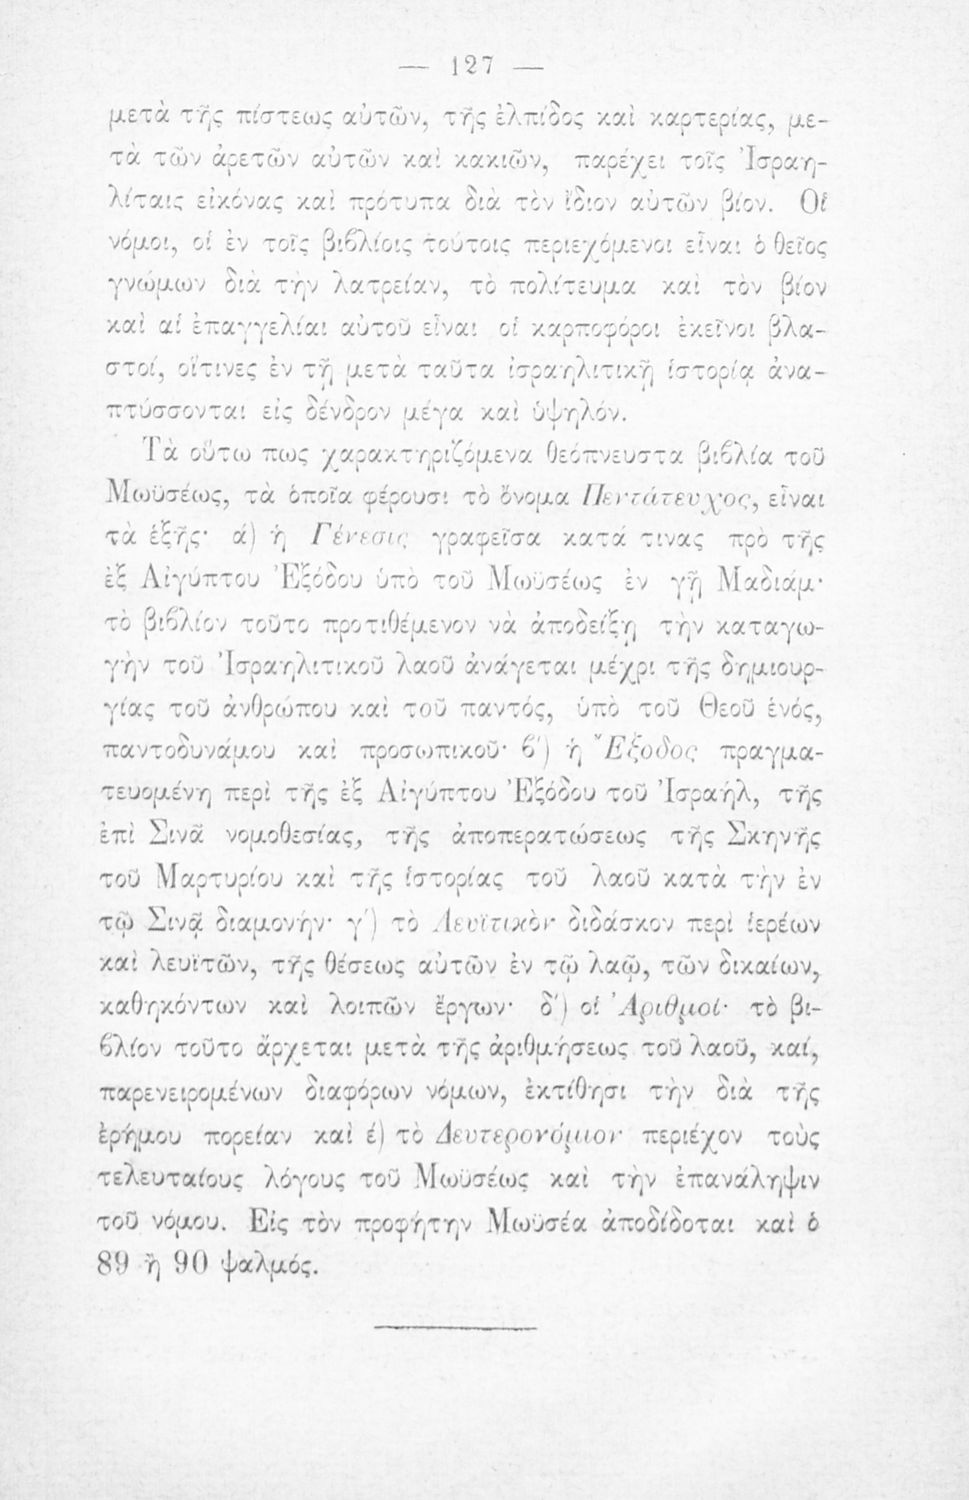 — 127 —
μετὰ τῆς πίστεως αὐτῶν, τῆς ἐλπίδος καὶ καρτερίας, με-
τὰ τῶν ἀρετῶν αὐτῶν καὶ κακιῶν, παρέχει τοῖς Ἰσραη-
λίταις εἰκόνας καὶ πρότυπα διὰ τὸν ἴδιον αὐτῶν βίον. Οἱ
νόμοι, οἱ ἐν τοῖς βιβλίοις τούτοις περιεχόμενοι εἶναι ὁ θεῖος
γνώμων διὰ τὴν λατρείαν, τὸ πολίτευμα καὶ τὸν βίον
καὶ αἱ ἐπαγγελίαι αὐτοῦ εἶναι οἱ καρποφόροι ἐκεῖνοι βλα-
στοί, οἵτινες ἐν τῇ μετὰ ταῦτα ἰσραηλιτικῇ ἱστορίᾳ ἀνα-
πτύσσονται εἰς δένδρον μέγα καὶ ὑψηλόν.
Τὰ οὕτω πως χαρακτηριζόμενα θεόπνευστα βιβλία τοῦ
Μωϋσέως, τὰ ὁποῖα φέρουσι τὸ ὄνομα Πεντάτευχος, εἶναι
τὰ ἑξῆς· α΄) ἡ Γένεσις γραφεῖσα κατά τινας πρὸ τῆς
ἐξ Αἰγύπτου Ἐξόδου ὑπὸ τοῦ Μωϋσέως ἐν γῇ Μαδιάμ·
τὸ βιβλίον τοῦτο προτιθέμενον νὰ ἀποδείξῃ τὴν καταγω-
γὴν τοῦ Ἰσραηλιτικοῦ λαοῦ ἀνάγεται μέχρι τῆς δημιουρ-
γίας τοῦ ἀνθρώπου καὶ τοῦ παντός, ὑπὸ τοῦ Θεοῦ ἑνός,
παντοδυνάμου καὶ προσωπικοῦ· β΄) ἡ Ἔξοδος πραγμα-
τευομένη περὶ τῆς ἐξ Αἰγύπτου Ἐξόδου τοῦ Ἰσραήλ, τῆς
ἐπὶ Σινᾶ νομοθεσίας, τῆς ἀποπερατώσεως τῆς Σκηνῆς
τοῦ Μαρτυρίου καὶ τῆς ἱστορίας τοῦ λαοῦ κατὰ τὴν ἐν
τῷ Σινᾷ διαμονήν· γ΄) τὸ Λευϊτικὸν διδάσκον περὶ ἱερέων
καὶ λευϊτῶν, τῆς θέσεως αὐτῶν ἐν τῷ λαῷ, τῶν δικαίων,
καθηκόντων καὶ λοιπῶν ἔργων· δ΄) οἱ Ἀριθμοί· τὸ βι-
βλίον τοῦτο ἄρχεται μετὰ τῆς ἀριθμήσεως τοῦ λαοῦ, καί,
παρενειρομένων διαφόρων νόμων, ἐκτίθησι τὴν διὰ τῆς
ἐρήμου πορείαν καὶ ε΄) τὸ Δευτερονόμιον περιέχον τοὺς
τελευταίους λόγους τοῦ Μωϋσέως καὶ τὴν ἐπανάληψιν
τοῦ νόμου. Εἰς τὸν προφήτην Μωϋσέα ἀποδίδοται καὶ ὁ
89 ἢ 90 ψαλμός.